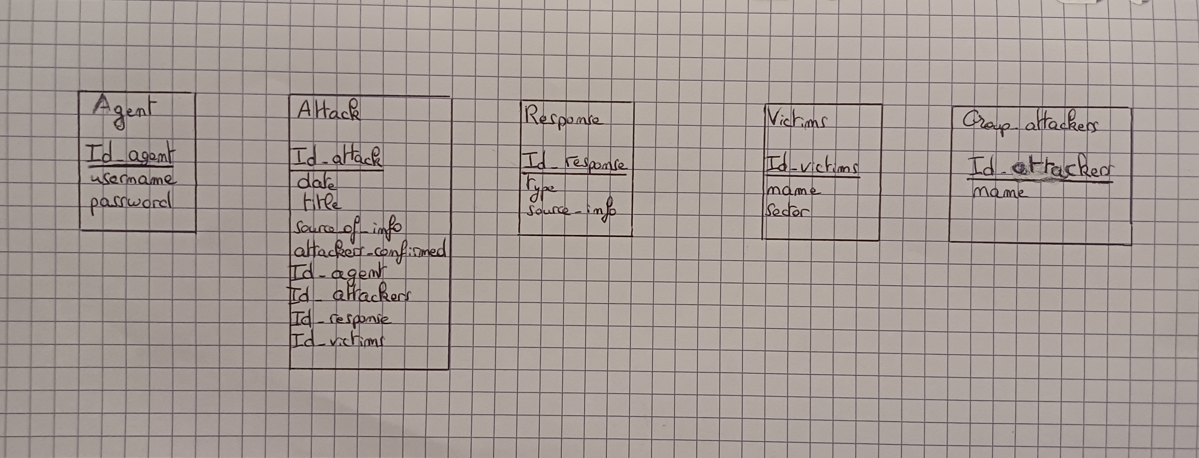 Agent
Id_agent
username
password
Attack
Id_attack
date
title
source_of_info
attackers_confirmed
Id_agent
Id_attackers
Id_response
Id_victims
Response
Id_response
type
source_info
Victims
Id_victims
name
sector
Group_attackers
Id_attackers
name